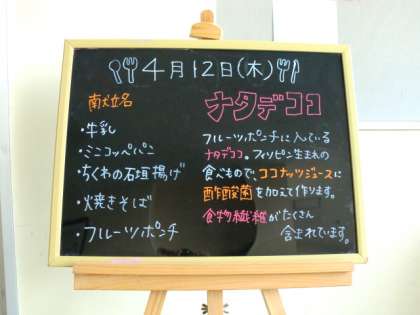 4月12日(木)
献立名
・牛乳
・ミニコッペパン
・ちくわの石垣揚げ
・焼きそば
・フルーツポンチ
ナタデココ
フルーツポンチに入っている
ナタデココ。フィリピン生まれの
食べもので、ココナッツジュースに
酢酸菌を加えて作ります。
食物繊維がたくさん
含まれています。